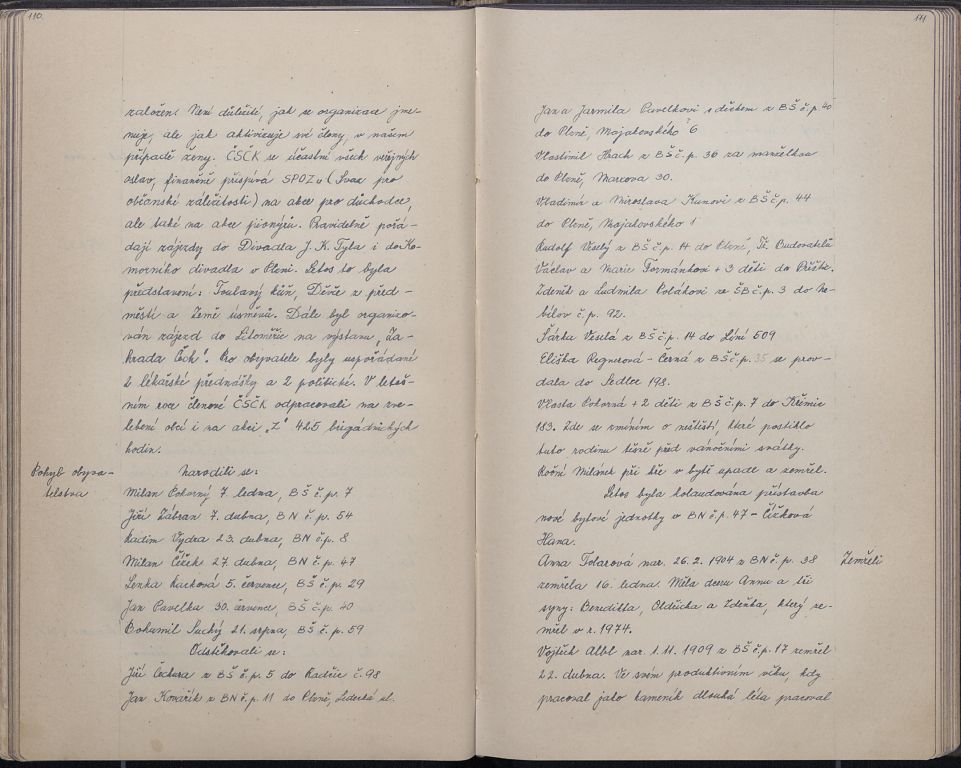 110.
založen. Není důležité, jak se organizace jme-
nuje, ale jak aktivizuje své členy, v našem
případě ženy. ČSČK se účastní všech veřejných
oslav, finančně přispívá SPOZu (Svaz pro
občanské záležitosti) na akce pro důchodce,
ale také na akce pionýrů. Pravidelně pořá-
dají zájezdy do Divadla J. K. Tyla i do Ko-
morního divadla v Plzni. Letos to byla
představení: Toulavý kůň, Děvče z před-
městí a Země úsměvů. Dále byl organizo-
ván zájezd do Litoměřic na výstavu „Za-
hrada Čech". Pro obyvatele byly uspořádané
2 lékařské přednášky a 2 politické. V letoš-
ním roce členové ČSČK odpracovali na zve-
lebení obcí i na akci „Z" 425 brigádnických
hodin.
Pohyb obyva-
telstva
Narodili se:
Milan Pokorný 7. ledna, BŠ č.p. 7
Jiří Zábran 7. dubna, BN č. p. 54
Radim Vydra 23. dubna, BN č.p. 8
Milan Čížek 27. dubna, BN č.p. 47
Lenka Kacková 5. července, BŠ č.p. 29
Jan Pavelka 30. června, BŠ č.p. 40
Bohumil Suchý 21. srpna, BŠ č.p. 59
Odstěhovali se:
Jiří Čechura z BŠ č.p. 5 do Radčic č. 98
Jan Kovářík z BN č.p. 11 do Plzně, ul.
111
Jan a Jarmila Pavelkovi s dítětem z BŠ č.p. 40
do Plzně, Majakovského 6
Vlastimil Hrach z BŠ č.p. 36 za manželkou
do Plzně, Marxova 30.
Vladimír a Miroslava Kunovi z BŠ č.p. 44
do Plzně, Majakovského 1
Rudolf Veselý z BŠ č.p. 14 do Plzně, Tř. Budovatelů
Václav a Marie Formánkovi + 3 děti do Přeštic.
Zdeněk a Ludmila Polákovi ze ŠB č.p. 3 do Ne-
bílov č.p. 92.
Šárka Veselá z BŠ č.p. 14 do Líní 609
Eliška Regnerová - Černá z BŠ č.p. 35 se prov-
dala do Sedlce 198.
Vlasta Pokorná + 2 děti z BŠ č.p. 7 do Křimic
183. Zde se zmíním o neštěstí, které postihlo
tuto rodinu těsně před vánočními svátky.
Roční Milánek při hře v bytě upadl a zemřel.
Letos byla kolaudována přístavba
nové bytové jednotky v BN č.p. 47 - Čížková
Hana.
Zemřeli
Anna Tolarová nar. 26. 2. 1904 z BN č. p. 38
zemřela 16. ledna. Měla dceru Annu a tři
syny: Benedikta, Oldřicha a Zdeňka, který ze-
mřel v r. 1974.
Vojtěch Albl nar. 1. 11. 1909 z BŠ č.p. 17 zemřel
22. dubna. Ve svém produktivním věku, kdy
pracoval jako kameník dlouhá léta pracoval